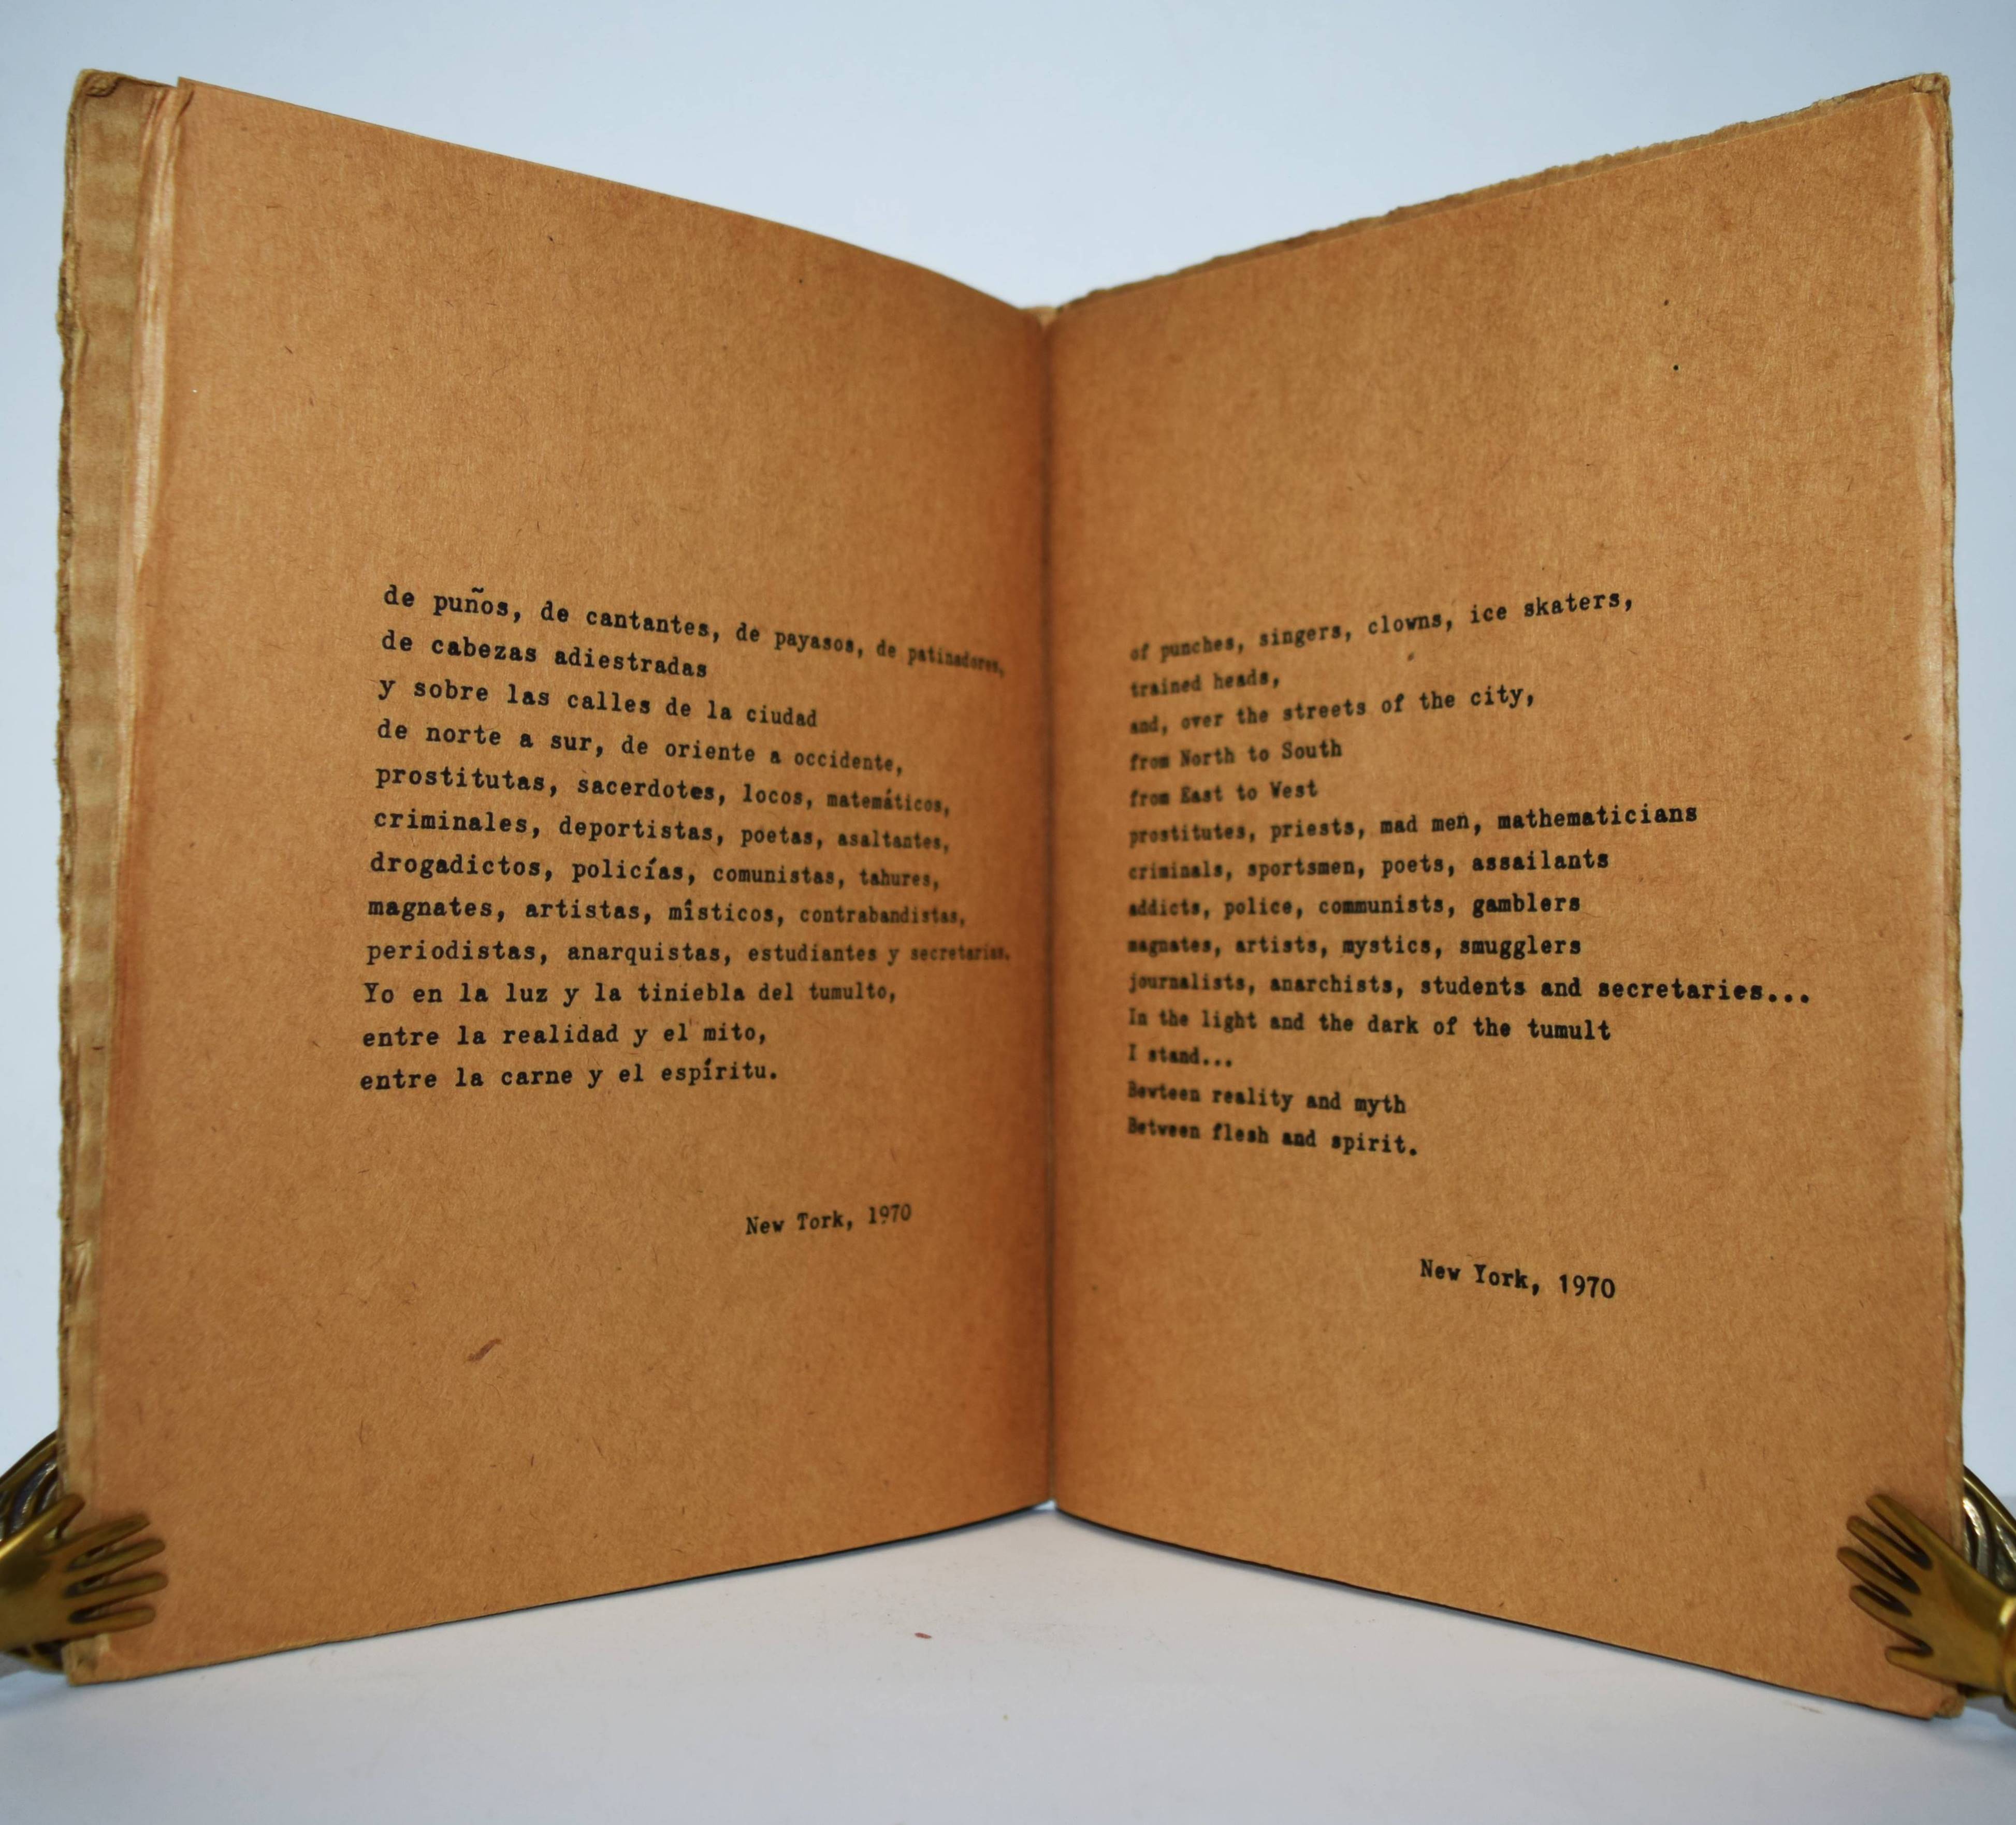 de puños, de cantantes, de payasos, de patinadores,
de cabezas adiestradas
y sobre las calles de la ciudad
de norte a sur, de oriente a occidente,
prostitutas, sacerdotes, locos, matemáticos,
criminales, deportistas, poetas, asaltantes,
drogadictos, policías, comunistas, tahures,
magnates, artistas, místicos, contrabandistas,
periodistas, anarquistas, estudiantes y secretarias.
Yo en la luz y la tiniebla del tumulto,
entre la realidad y el mito,
entre la carne y el espíritu.
New Tork, 1970
of punches, singers, clowns, ice skaters,
trained heads,
and, over the streets of the city,
from North to South
from East to West
prostitutes, priests, mad men, mathematicians
criminals, sportsmen, poets, assailants
addicts, police, communists, gamblers
magnates, artists, mystics, smugglers
journalists, anarchists, students and secretaries...
In the light and the dark of the tumult
I stand...
Bewteen reality and myth
Between flesh and spirit.
New York, 1970